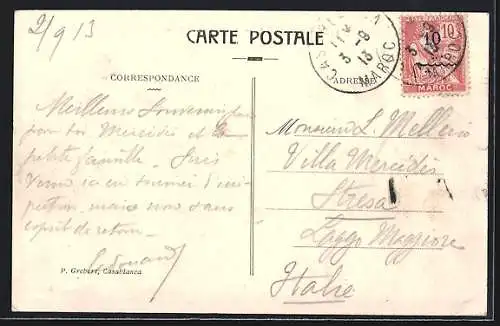 2/9 13
CARTE POSTALE
CORRESPONDANCE
ADRESSE
MAROC
3 -9 13
10 10
MAROC
Meilleurs Souvenirs
pour toi Mercédès et la
petite famille. Suis
venu ici en tournée d'ins-
pection, mais non sans
esprit de retour.
Edouard
Monsieur L. Mellerio
Villa Mercédès
Stresa
Laggo Maggiore
Italie
P. Grebert, Casablanca